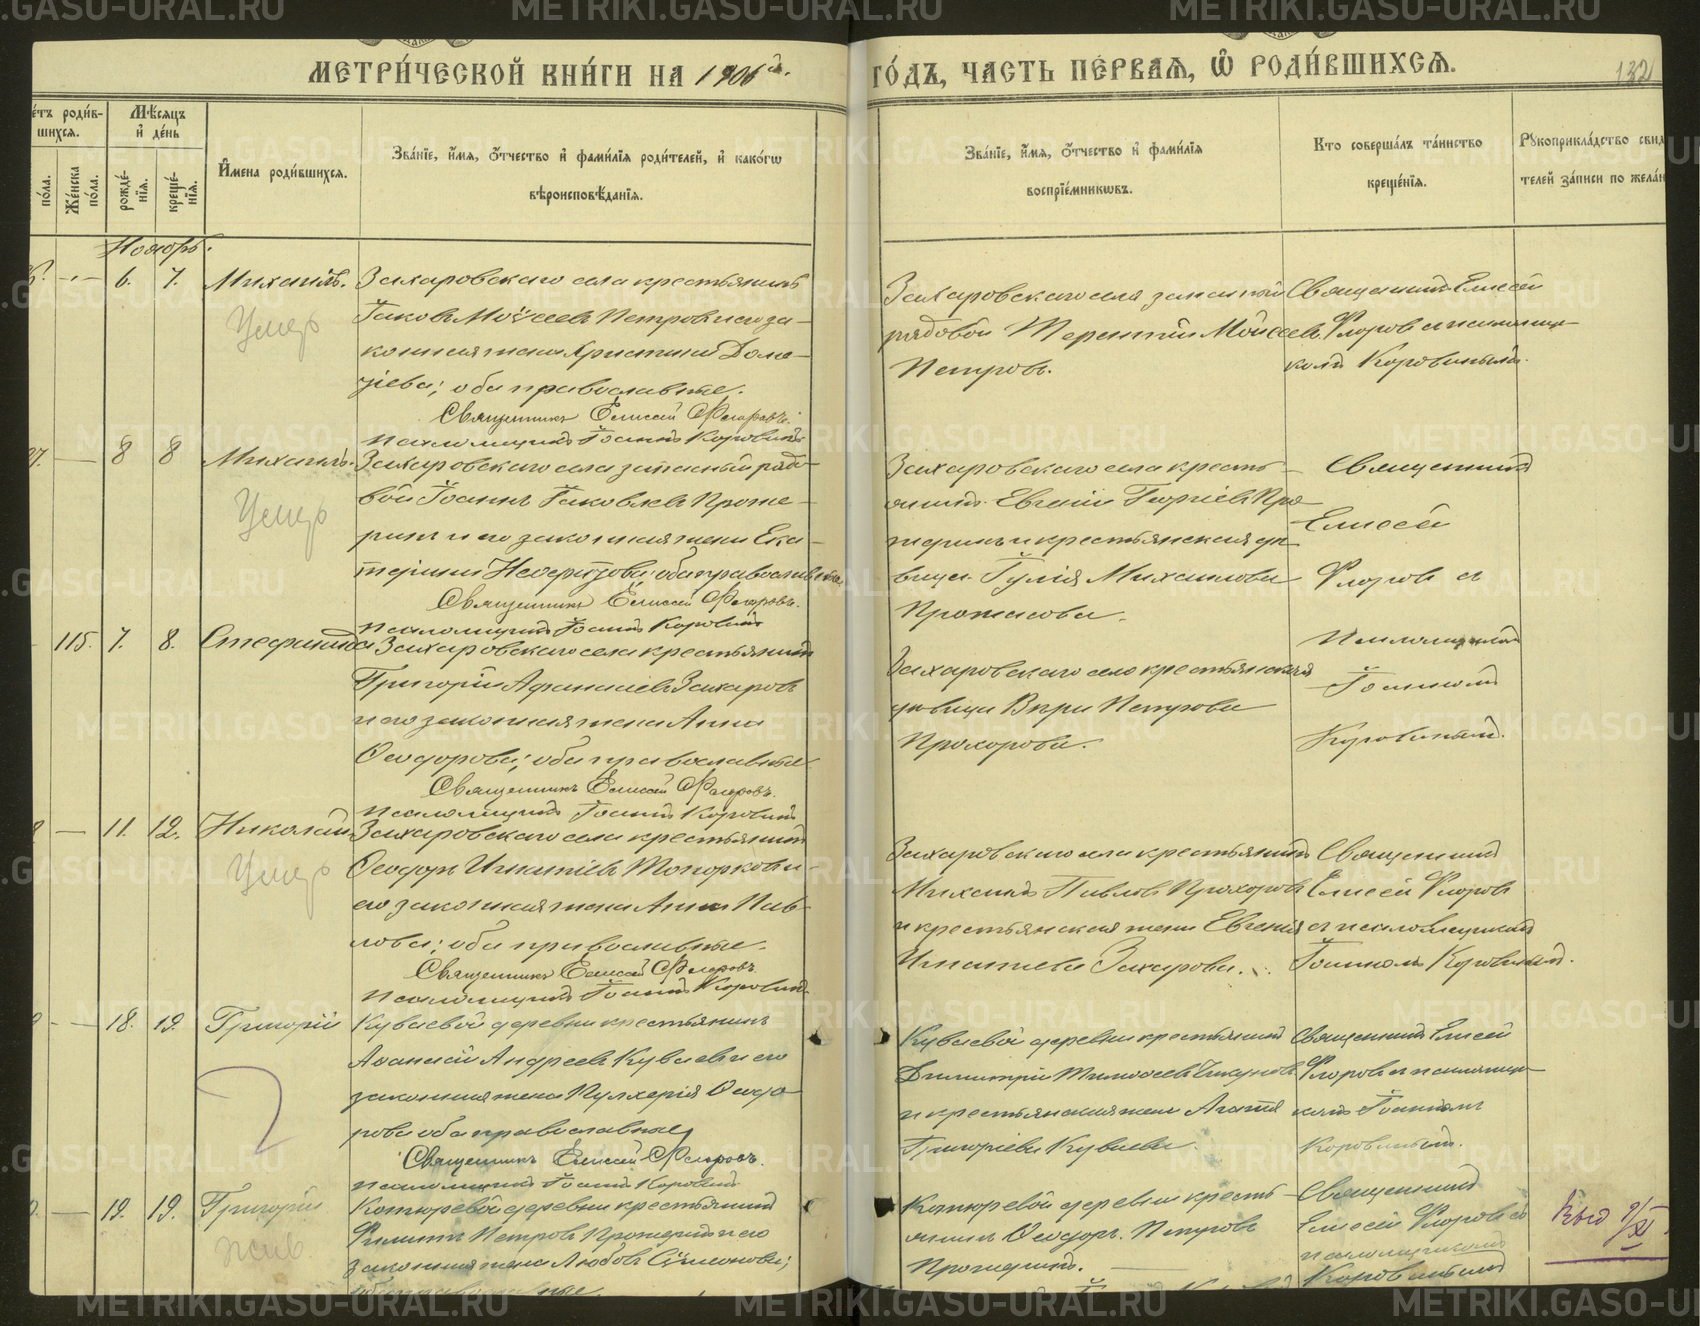 МЕТРИ́ЧЕСКОЙ КНИ́ГИ НА 1906 й.
ГО́ДЪ, ЧАСТЬ ПЕ́РВАЯ, Ѡ҆ РОДИ́ВШИХСЯ.
132
роди́в-
шихся.
по́ла.
Же́нска по́ла.
Мѣ́сяцъ и҆ де́нь
рожде́нїя.
креще́нїя.
И҆мена роди́вшихся.
Зва́нїе, и҆́мя, ѻ҆́тчество и҆ фами́лїя роди́телей, и҆ како́гѡ
вѣроисповѣ́данїя.
Зва́нїе, и҆́мя, ѻ҆́тчество и҆ фами́лїя
воспрїе́мникѡвъ.
Кто соверша́лъ та́инство
креще́нїя.
Рꙋкоприкла́дство свид
телей за́писи по жела́н
Ноябрь.
6. 7. Михаилъ.
Умер
Захаровскаго села крестьянинъ
Іаковъ Моѵсеевъ Петровъ и его за-
конная жена Христина Дома-
нова; оба православные.
Священникъ Елисей Флоровъ.
Псаломщикъ Іоаннъ Коровинъ
Захаровскаго села запасный
рядовой Терентій Мойсеевъ
Петровъ.
Священникъ Елисей
Флоровъ съ псаломщи-
комъ Коровинымъ.
8 8 Михаилъ.
Умер
Захаровскаго села запасный рядо-
вой Іоаннъ Іаковлевъ Проже-
ринъ и его законная жена Ека-
терина оба православные
Священникъ Елисей Флоровъ.
Псаломщикъ Іоаннъ Коровинъ
Захаровскаго села кресть-
янинъ Евгеній Георгіевъ Про-
жеринъ и крестьянская дѣ-
вица Іулія Михаилова
Протасова.
Священникъ
Елисей
Флоровъ съ
псаломщикомъ
Іоанномъ
Коровинымъ.
115. 7. 8. Стефанида
Захаровскаго села крестьянинъ
Григорій Аѳанасіевъ Захаровъ
и его законная жена Анна
Ѳеодорова; оба православные
Священникъ Елисей Флоровъ.
Псаломщикъ Іоаннъ Коровинъ
Захаровскаго села крестьянская
дѣвица Вѣра Петрова
Прохорова.
11. 12. Николай
Умер
Захаровскаго села крестьянинъ
Ѳеодоръ Игнатіевъ Топорковъ и
его законная жена Анна Пав-
лова; оба православные.
Священникъ Елисей Флоровъ
Псаломщикъ Іоаннъ Коровинъ
Захаровскаго села крестьянинъ
Михаилъ Павловъ Прохоровъ
и крестьянская жена Евгенія
Игнатіева Захарова.
Священникъ
Елисей Флоровъ
съ псаломщикомъ
Іоанномъ Коровинымъ.
18. 19. Григорій
Куваевой деревни крестьянинъ
Аѳанасій Андреевъ Куваевъ и его
законная жена Пулхерія Ѳеодо-
рова оба православные
Священникъ Елисей Флоровъ.
Псаломщикъ Іоаннъ Коровинъ
Куваевой деревни крестьянинъ
Димитрій Тимоѳеевъ Чикуновъ
и крестьянская жена Агаѳія
Григоріева Куваева.
Священникъ Елисей
Флоровъ съ псаломщи-
комъ Іоанномъ
Коровинымъ.
19. 19. Григорій
жив
деревни крестьянинъ
Филиппъ Петровъ Прожеринъ и его
законная жена Любовь Симонова;
оба православные.
деревни кресть-
янинъ Ѳеодоръ Петровъ
Прожеринъ.
Священникъ
Елисей Флоровъ съ
псаломщикомъ
Коровинымъ
METRIKI.GASO-URAL.RU